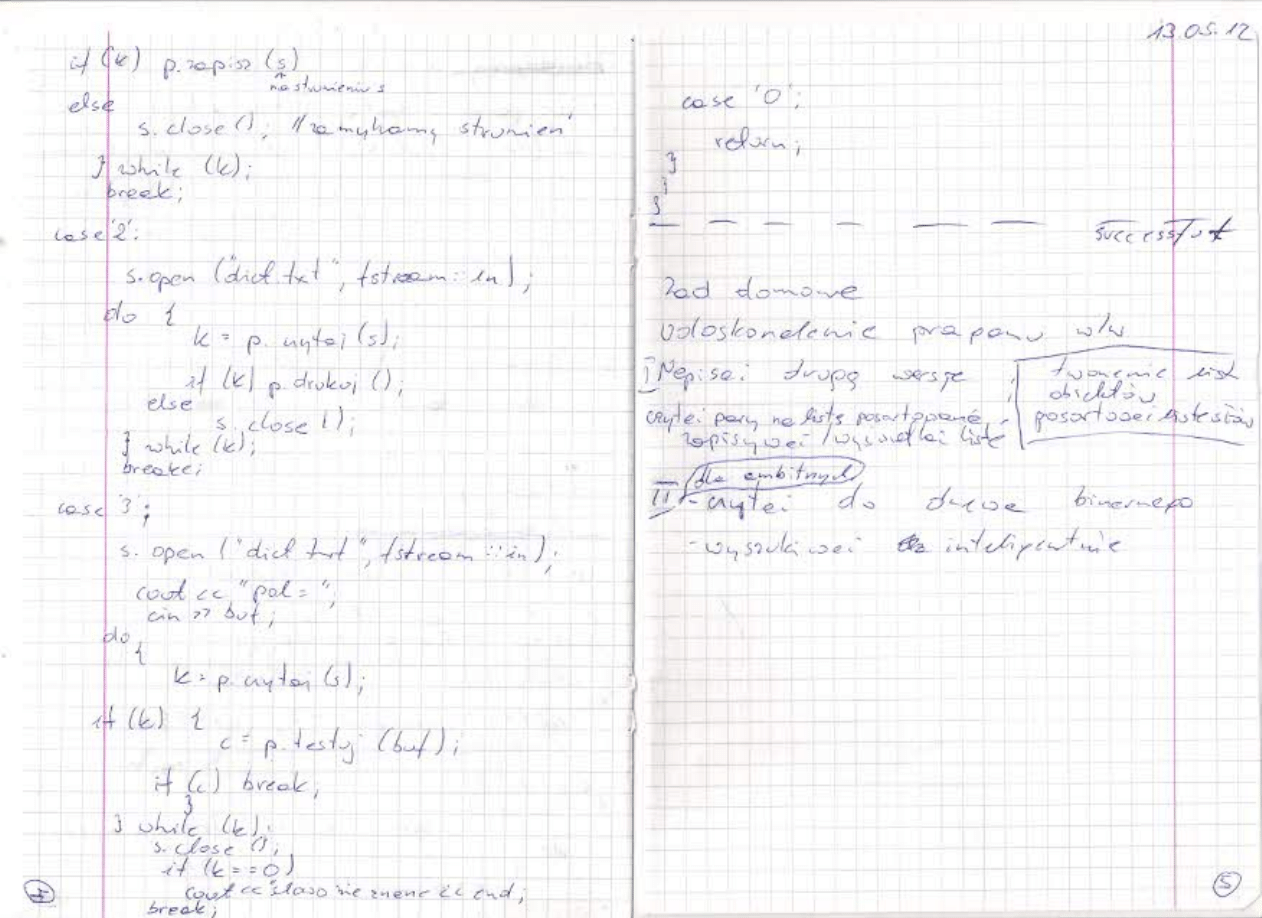 if (k) p.zapisz (s)
na strumieniu s
else
s.close(); //zamykamy strumień
} while (k);
break;
case '2':
s.open ("dict.txt", fstream::in);
do {
k = p.czytaj (s);
if (k) p.drukuj ();
else
s.close ();
} while (k);
breake;
case '3';
s.open ("dict.txt", fstream::in);
cout << "pol=";
cin >> buf;
do {
k = p.czytaj (s);
if (k) {
c = p.testuj (buf);
if (c) break;
}
} while (k);
s.close ();
if (k==0)
cout << "słowo nie znane << end;
break;
13.05.12
case '0';
return;
}
;
}
successfut
Zad domowe
Udoskonalenie programu w/w
I Napisać drugą wersję
czytać pary na listę posortowaną
zapisywać / wyświetlać listę
tworzenie list
obiektów
posortować listę słów
II dla ambitnych
- czytać do drzewa binarnego
- wyszukiwać inteligentnie
5